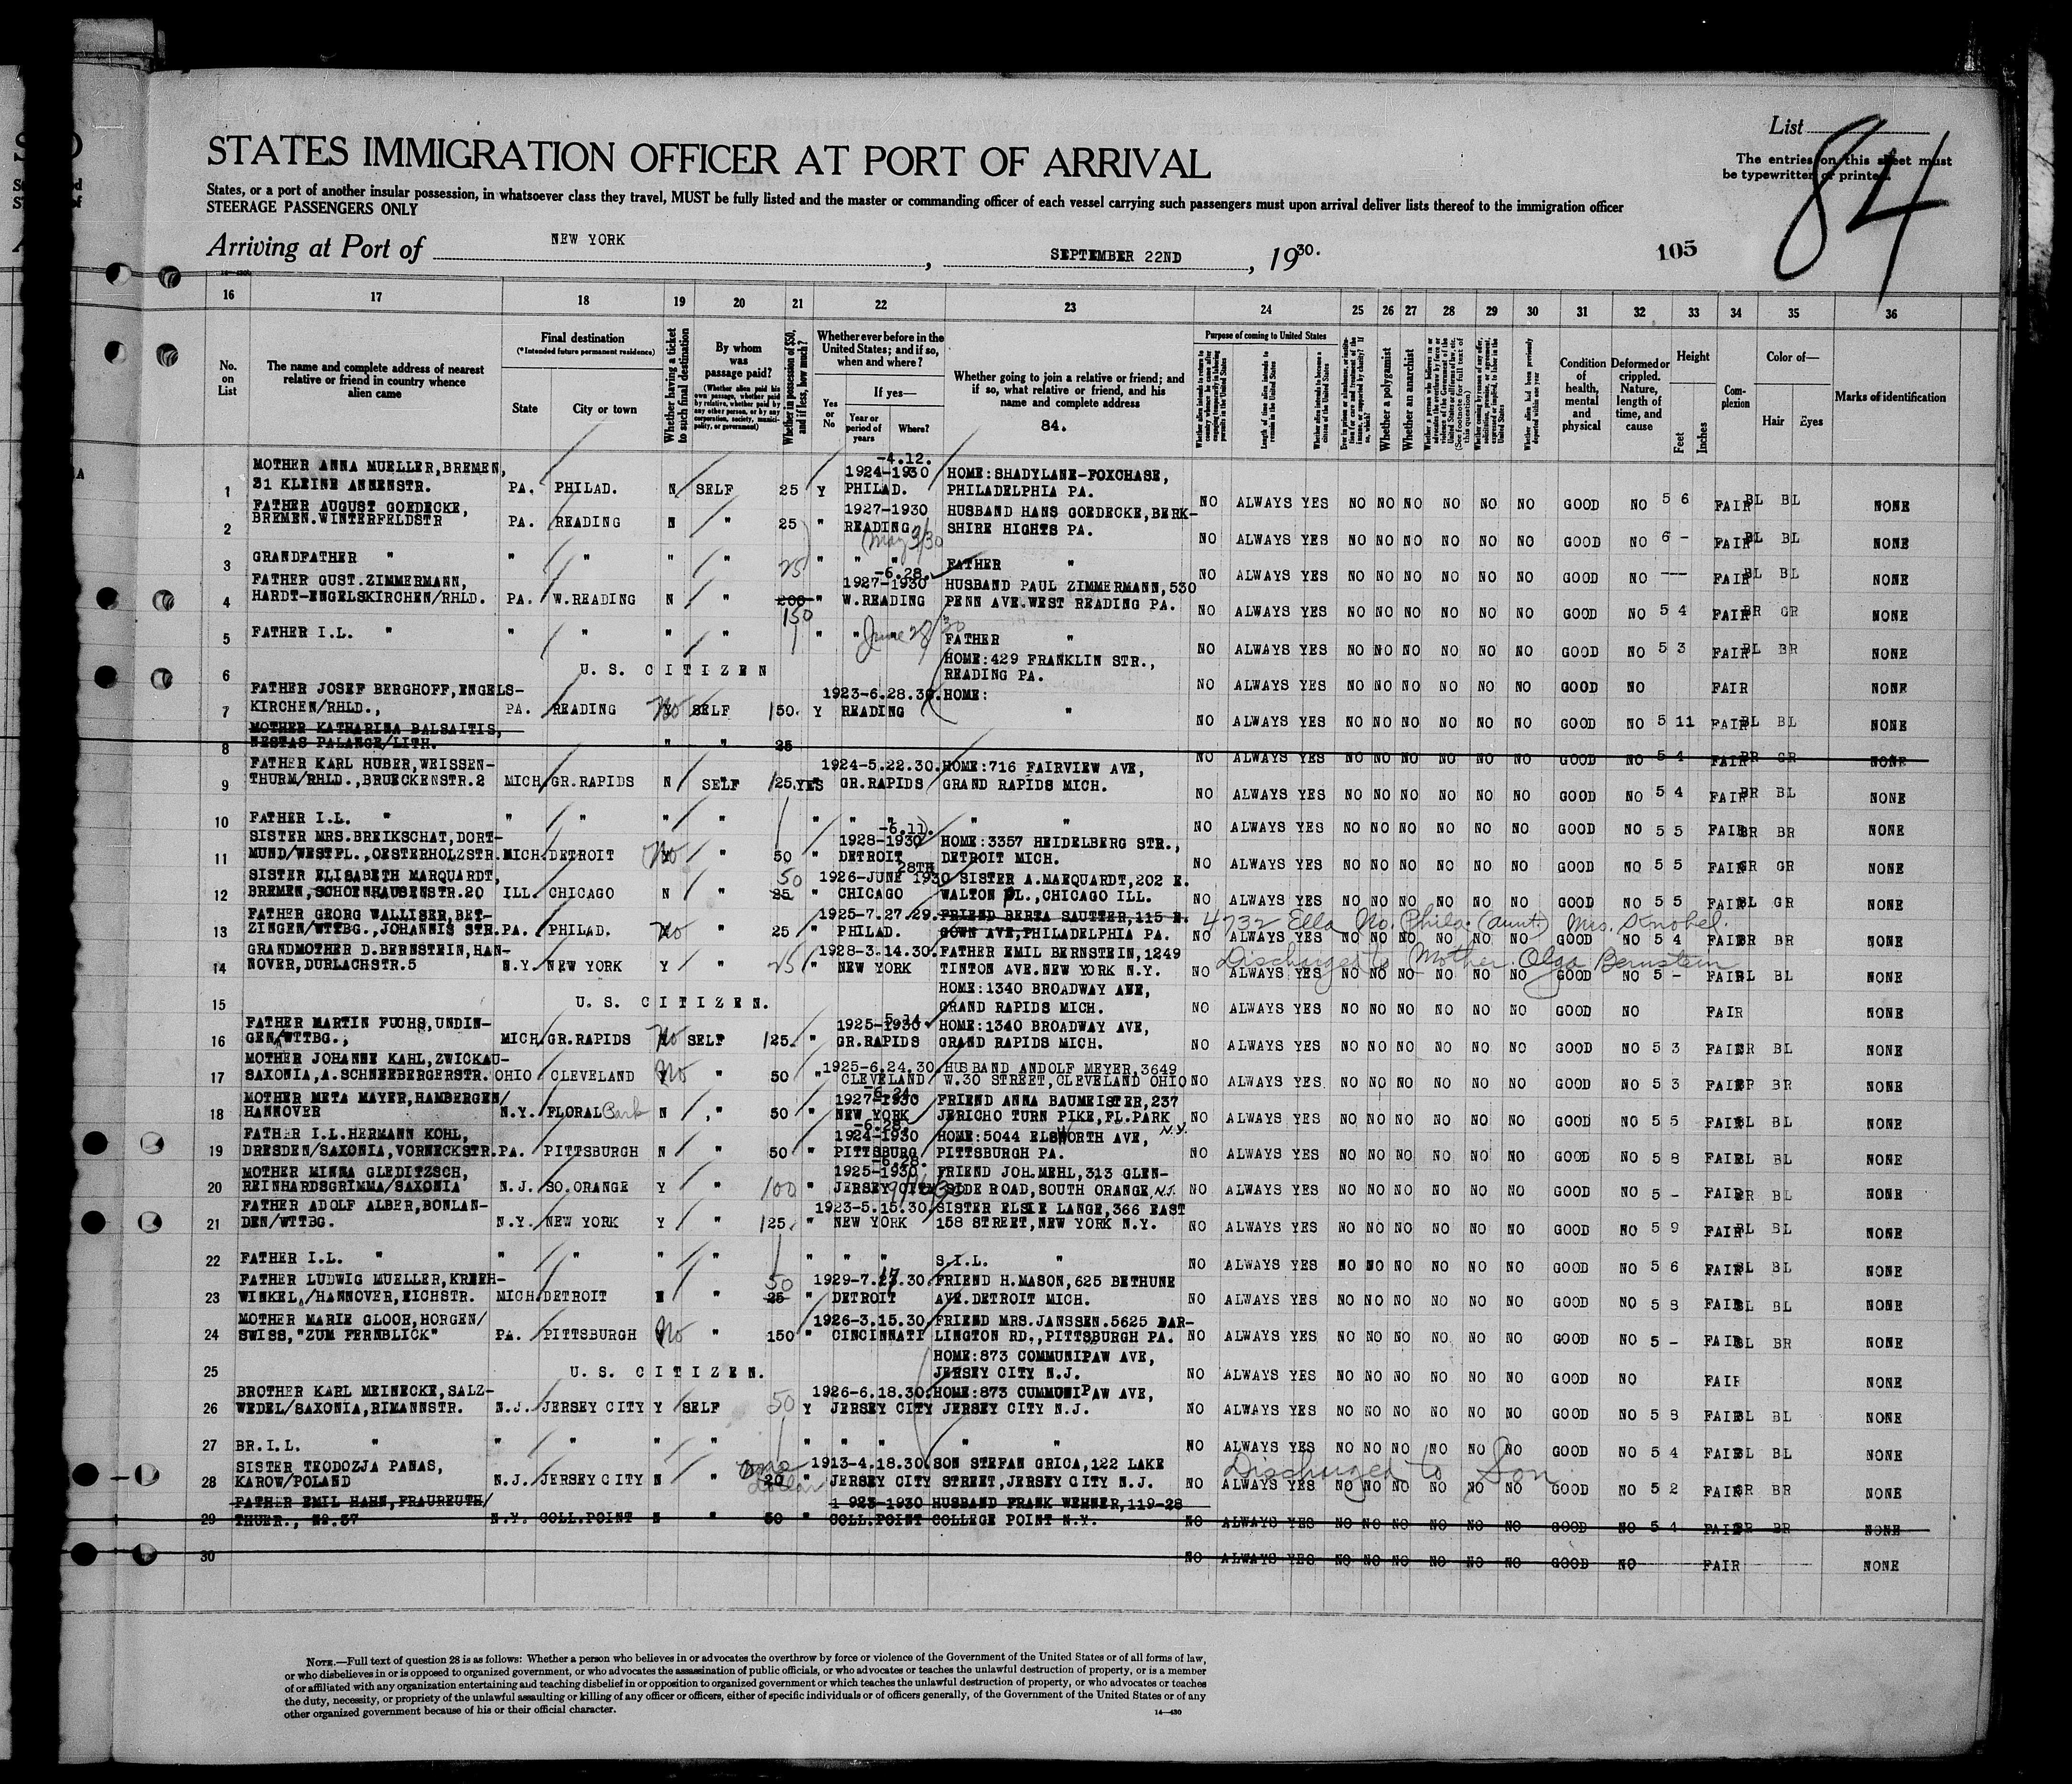 List
84
The entries on this sheet must
be typewritten or printed.
STATES IMMIGRATION OFFICER AT PORT OF ARRIVAL
States, or a port of another insular possession, in whatsoever class they travel, MUST be fully listed and the master or commanding officer of each vessel carrying such passengers must upon arrival deliver lists thereof to the immigration officer
STEERAGE PASSENGERS ONLY
Arriving at Port of NEW YORK, SEPTEMBER 22ND, 1930.
105
16 17 18 19 20 21 22 23 24 25 26 27 28 29 30 31 32 33 34 35 36
No. on List
The name and complete address of nearest relative or friend in country whence alien came
Final destination
(*Intended future permanent residence)
State
City or town
Whether having a ticket to such final destination
By whom was passage paid?
(Whether alien paid his own passage, whether paid by relative, whether paid by any other person, or by any corporation, society, municipality, or government)
Whether in possession of $50, and if less, how much?
Whether ever before in the United States; and if so, when and where?
Yes or No
If yes—
Year or period of years
Where?
Whether going to join a relative or friend; and if so, what relative or friend, and his name and complete address
84.
Purpose of coming to United States
Length of time alien intends to remain in the United States
Whether a polygamist
Whether an anarchist
Condition of health, mental and physical
Deformed or crippled. Nature, length of time, and cause
Height
Feet
Inches
Complexion
Color of—
Hair
Eyes
Marks of identification
MOTHER ANNA MUELLER,BREMEN, -4.12. 1924-1930 HOME:SHADYLANE-FOXCHASE,
1 31 KLEINE ANNENSTR. PA. PHILAD. N SELF 25 Y PHILAD. PHILADELPHIA PA. NO ALWAYS YES NO NO NO NO NO NO GOOD NO 5 6 FAIR BL BL NONE
FATHER AUGUST GOEDECKE, 1927-1930 HUSBAND HANS GOEDECKE,BERK-
2 BREMEN.WINTERFELDSTR PA. READING N " 25 " READING SHIRE HIGHTS PA. NO ALWAYS YES NO NO NO NO NO NO GOOD NO 6 - FAIR BL BL NONE
May 3/30
3 GRANDFATHER " " " " " 25 " " " FATHER " NO ALWAYS YES NO NO NO NO NO NO GOOD NO --- FAIR BL BL NONE
FATHER GUST.ZIMMERMANN, -6.28. 1927-1930 HUSBAND PAUL ZIMMERMANN,530
4 HARDT-ENGELSKIRCHEN/RHLD. PA. W.READING N " 200 150 " W.READING PENN AVE.WEST READING PA. NO ALWAYS YES NO NO NO NO NO NO GOOD NO 5 4 FAIR BR GR NONE
5 FATHER I.L. " " " " " " " " June 28/30 FATHER " NO ALWAYS YES NO NO NO NO NO NO GOOD NO 5 3 FAIR BL BR NONE
HOME:429 FRANKLIN STR.,
6 U. S. CITIZEN READING PA. NO ALWAYS YES NO NO NO NO NO NO GOOD NO FAIR NONE
FATHER JOSEF BERGHOFF,ENGELS- 1923-6.28.30. HOME:
7 KIRCHEN/RHLD., PA. READING No SELF 150. Y READING " NO ALWAYS YES NO NO NO NO NO NO GOOD NO 5 11 FAIR BL BL NONE
MOTHER KATHARINA BALSAITIS,
8 NESTAS PALANGE/LITH. " " 25 NO ALWAYS YES NO NO NO NO NO NO GOOD NO 5 4 FAIR BR GR NONE
FATHER KARL HUBER,WEISSEN- 1924-5.22.30. HOME:716 FAIRVIEW AVE,
9 THURM/RHLD.,BRUECKENSTR.2 MICH. GR.RAPIDS N SELF 125. YES GR.RAPIDS GRAND RAPIDS MICH. NO ALWAYS YES NO NO NO NO NO NO GOOD NO 5 4 FAIR BR BL NONE
10 FATHER I.L. " " " " " " " " " " NO ALWAYS YES NO NO NO NO NO NO GOOD NO 5 5 FAIR BR BR NONE
SISTER MRS.BREIKSCHAT,DORT- -6.11. 1928-1930 HOME:3357 HEIDELBERG STR.,
11 MUND/WESTFL.,OESTERHOLZSTR. MICH. DETROIT No " 50 " DETROIT DETROIT MICH. NO ALWAYS YES NO NO NO NO NO NO GOOD NO 5 5 FAIR GR GR NONE
SISTER ELISABETH MARQUARDT, 28TH 1926-JUNE 1930 SISTER A.MARQUARDT,202 E.
12 BREMEN,SCHOENHAUSENSTR.20 ILL. CHICAGO N " 25 50 " CHICAGO WALTON PL.,CHICAGO ILL. NO ALWAYS YES NO NO NO NO NO NO GOOD NO 5 5 FAIR BL GR NONE
FATHER GEORG WALLISER,BET- 1925-7.27.29. FRIEND BERTA SAUTTER,115 E. 4732 Ella No. Phila. (aunt) Mrs. Strobel.
13 ZINGEN/WTTBG.,JOHANNIS STR. PA. PHILAD. No " 25 " PHILAD. GOWN AVE,PHILADELPHIA PA. NO ALWAYS YES NO NO NO NO NO NO GOOD NO 5 4 FAIR BR BR NONE
GRANDMOTHER D.BERNSTEIN,HAN- 1928-3.14.30. FATHER EMIL BERNSTEIN,1249 Discharged to Mother Olga Bernstein
14 NOVER,DURLACHSTR.5 N.Y. NEW YORK Y " 25 " NEW YORK TINTON AVE.NEW YORK N.Y. NO ALWAYS YES NO NO NO NO NO NO GOOD NO 5 - FAIR BL BL NONE
HOME:1340 BROADWAY AVE,
15 U. S. CITIZEN. GRAND RAPIDS MICH. NO ALWAYS YES NO NO NO NO NO NO GOOD NO FAIR NONE
FATHER MARTIN FUCHS,UNDIN- 5.14. 1925-1930 HOME:1340 BROADWAY AVE,
16 GEN/WTTBG., MICH. GR.RAPIDS No SELF 125. " GR.RAPIDS GRAND RAPIDS MICH. NO ALWAYS YES NO NO NO NO NO NO GOOD NO 5 3 FAIR BR BL NONE
MOTHER JOHANNE KAHL,ZWICKAU- 1925-6.24.30. HUSBAND ANDOLF MEYER,3649
17 SAXONIA,A.SCHNEEBERGERSTR. OHIO CLEVELAND No " 50 " CLEVELAND W.30 STREET,CLEVELAND OHIO NO ALWAYS YES NO NO NO NO NO NO GOOD NO 5 3 FAIR BR BR NONE
MOTHER META MAYER,HAMBERGEN/ 1927-1930 FRIEND ANNA BAUMEISTER,237
18 HANNOVER N.Y. FLORAL Park N " 50 " NEW YORK JERICHO TURN PIKE,FL.PARK N.Y. NO ALWAYS YES NO NO NO NO NO NO GOOD NO 5 5 FAIR BL BL NONE
FATHER I.L.HERMANN KOHL, -6.28. 1924-1930 HOME:5044 ELSWORTH AVE,
19 DRESDEN/SAXONIA,VORNECKSTR. PA. PITTSBURGH N " 50 " PITTSBURG PITTSBURGH PA. NO ALWAYS YES NO NO NO NO NO NO GOOD NO 5 8 FAIR BL BL NONE
MOTHER MINNA GLEDITZSCH, -6.28. 1925-1930 FRIEND JOH.MEHL,313 GLEN-
20 REINHARDSGRIMMA/SAXONIA N.J. SO.ORANGE Y " 100 " JERSEY CITY SIDE ROAD,SOUTH ORANGE, N.J. NO ALWAYS YES NO NO NO NO NO NO GOOD NO 5 - FAIR BR BL NONE
FATHER ADOLF ALBER,BONLAN- 1923-5.15.30. SISTER ELSIE LANGE,366 EAST
21 DEN/WTTBG. N.Y. NEW YORK Y " 125. " NEW YORK 158 STREET,NEW YORK N.Y. NO ALWAYS YES NO NO NO NO NO NO GOOD NO 5 9 FAIR BL BL NONE
22 FATHER I.L. " " " " " " " " S.I.L. " NO ALWAYS YES NO NO NO NO NO NO GOOD NO 5 6 FAIR BL BL NONE
FATHER LUDWIG MUELLER,KREEH- 1929-7.17.30. FRIEND H.MASON,625 BETHUNE
23 WINKEL,/HANNOVER,EICHSTR. MICH. DETROIT N " 25 50 " DETROIT AVE.DETROIT MICH. NO ALWAYS YES NO NO NO NO NO NO GOOD NO 5 8 FAIR BL BL NONE
MOTHER MARIE GLOOR,HORGEN/ 1926-3.15.30. FRIEND MRS.JANSSEN.5625 DAR-
24 SWISS,"ZUM FERNBLICK" PA. PITTSBURGH No " 150 " CINCINNATI LINGTON RD,,PITTSBURGH PA. NO ALWAYS YES NO NO NO NO NO NO GOOD NO 5 - FAIR BL BR NONE
HOME:873 COMMUNIPAW AVE,
25 U. S. CITIZEN. JERSEY CITY N.J. NO ALWAYS YES NO NO NO NO NO NO GOOD NO FAIR NONE
BROTHER KARL MEINECKE,SALZ- 1926-6.18.30. HOME:873 CUMMUNIPAW AVE,
26 WEDEL/SAXONIA,RIMANNSTR. N.J. JERSEY CITY Y SELF 50 Y JERSEY CITY JERSEY CITY N.J. NO ALWAYS YES NO NO NO NO NO NO GOOD NO 5 8 FAIR BL BL NONE
27 BR.I.L. " " " " " " " " " " NO ALWAYS YES NO NO NO NO NO NO GOOD NO 5 4 FAIR BL BL NONE
SISTER TEODOZJA PANAS, 1913-4.18.30. SON STEFAN GRICA,122 LAKE Discharged to Son
28 KAROW/POLAND N.J. JERSEY CITY N " 20 " JERSEY CITY STREET,JERSEY CITY N.J. NO ALWAYS YES NO NO NO NO NO NO GOOD NO 5 2 FAIR GR BR NONE
FATHER EMIL HAHN,FRAUREUTH/ 1 923-1930 HUSBAND FRANK WEHNER,119-28
29 THUER., NO.37 N.Y. COLL.POINT N " 50 " COLL.POINT COLLEGE POINT N.Y. NO ALWAYS YES NO NO NO NO NO NO GOOD NO 5 4 FAIR BR BR NONE
30 NO ALWAYS YES NO NO NO NO NO NO GOOD NO FAIR NONE
NOTE.—Full text of question 28 is as follows: Whether a person who believes in or advocates the overthrow by force or violence of the Government of the United States or of all forms of law,
or who disbelieves in or is opposed to organized government, or who advocates the assassination of public officials, or who advocates or teaches the unlawful destruction of property, or is a member
of or affiliated with any organization entertaining and teaching disbelief in or opposition to organized government or which teaches the unlawful destruction of property, or who advocates or teaches
the duty, necessity, or propriety of the unlawful assaulting or killing of any officer or officers, either of specific individuals or of officers generally, of the Government of the United States or of any
other organized government because of his or their official character.
14—430